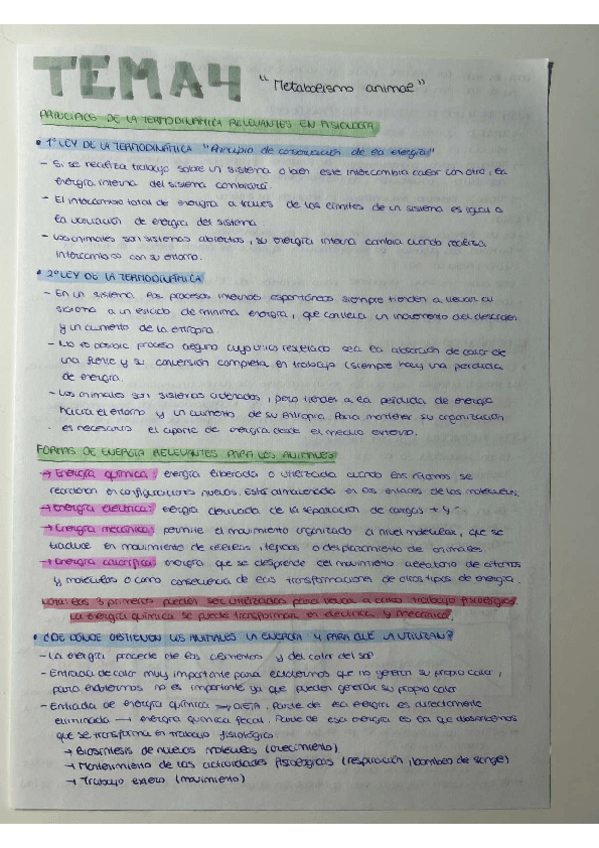 TEMA 4 "Metabolismo animal"
PRINCIPIOS DE LA TERMODINÁMICA RELEVANTES EN FISIOLOGÍA
• 1ª LEY DE LA TERMODINÁTICA "Principio de conservación de la energía"
- Si se realiza trabajo sobre un sistema o bien este intercambia calor con otro, la
energía interna del sistema cambiará.
- El intercambio total de energía a traves de los límites de un sistema es igual a
la variación de energía del sistema.
- Los animales son sistemas abiertos, su energía interna cambia cuando realiza
intercambios con su entorno.
• 2ª LEY DE LA TERMODINÁMICA
- En un sistema los procesos internos espontáneos siempre tienden a llevar al
sistema a un estado de minima energía, que conlleva un incremento del desorden
y un aumento de la entropía.
- No es posible proceso alguno cuyo unico resultado sea la absorción de calor de
una fuente y su conversión completa en trabajo (siempre hay una perdida
de energía.
- Los animales son sistemas ordenados, pero tienden a la perdida de energía
hacia el entorno y un aumento de su Antropia. Para mantener su organización
es necesario el aporte de energía desde el medio externo.
FORMAS DE ENERGÍA RELEVANTES PARA LOS ANIMALES
→ Energía química: energía liberada o utilizada cuando los átomos se
reordenan en configuraciones nuevas. Está almacenada en los enlaces de las moléculas.
→ Energía electrica: energía derivada de la separación de cargas + y -
→ Energía mecánica: permite el movimiento organizado a nivel molecular, que se
traduce en movimiento de células, tejidos o desplazamiento de animales.
→ Energía calorífica: energía que se desprende del movimiento aleatorio de átomos
y moléculas o como consecuencia de las transformaciones de otros tipos de energía.
Nota: las 3 primeras pueden ser utilizadas para llevar a cabo trabajo fisiológico.
La energía química se puede transformar en electrica y mecánica.
• ¿DE DÓNDE OBTIENEN LOS ANIMALES LA ENERGÍA Y PARA QUÉ LA UTILIZAN?
- La energía procede de los alimentos y del calor del sol
- Entrada de calor muy importante para ectotermos que no generan su propio calor,
para endotermos no es importante ya que pueden generar su propio calor
- Entrada de energía química → DIETA. Parte de esa energía es directamente
eliminada → energía química fecal. Parte de esa energía es la que absorbemos
que se transforma en trabajo fisiológico:
→ Biosíntesis de nuevas moléculas (crecimiento)
→ Mantenimiento de las actividades fisiológicas (respiración, bombeo de sangre)
→ Trabajo externo (movimiento)